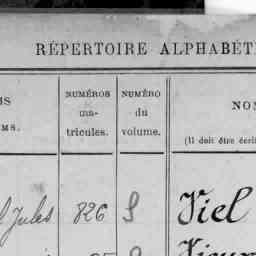 RÉPERTOIRE ALPHABÉT
NUMÉROS ma- tricules.
NUMÉRO du volume.
NO
MS.
(Il doit être écri
Jules 826 Viel